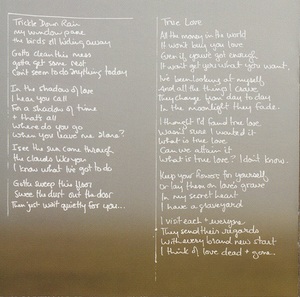 Trickle Down Rain
my window pane
the birds all hiding away
Gotta clean this mess
gotta get some rest
Can't seem to do anything today
In the shadow of love
I hear you call
For a shadow of time
+ that's all
Where do you go
When you leave me alone?
I see the sun come through
the clouds like you
I know what I've got to do
Gotta sweep this floor
Swee the dust out the door
Then just wait quietly for you...
True Love
All the money in the world
It won't buy you love
Even if you've got enough
It won't get you what you want
I've been looking at myself
and all the things I crave
They change from day to day
In the moonlight they fade.
I thought I'd found true love
Wasn't sure I wanted it
What is true love
Can we attain it
What is true love? I don't know.
Keep your flowers for yourself
Or lay them on love's grave
In my secret heart
I have a graveyard
I visit each + everyone
They send their regards
With every brand new start
I think of love dead + gone...